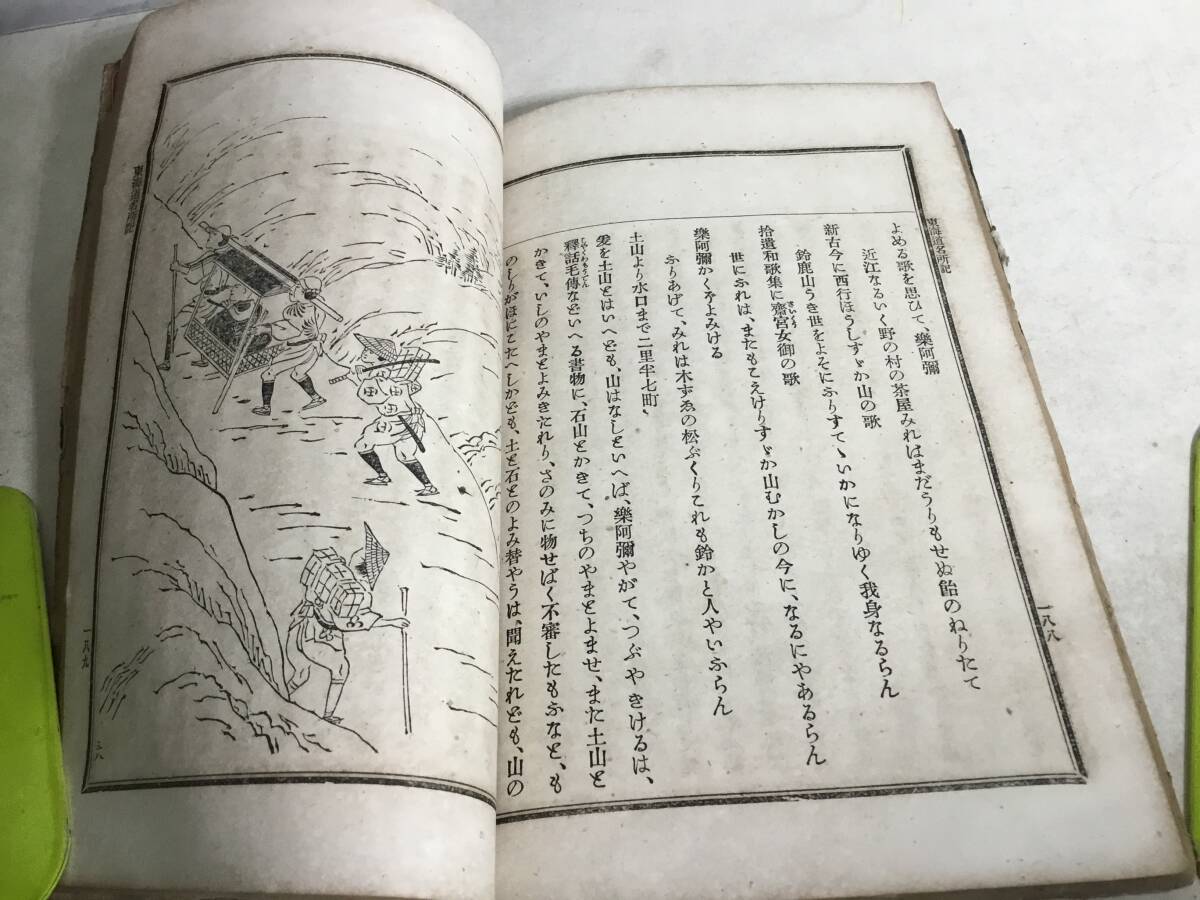 東海道名所記
一八八
よめる歌を思ひて、樂阿彌
近江なるいく野の村の茶屋みれはまだうりもせぬ飴のねりたて
新古今に西行ほうしすゞか山の歌
鈴鹿山うき世をよそにふりすてゝいかになりゆく我身なるらん
拾遺和歌集に齋宮女御の歌
世にふれは、またもこえけりすゞか山むかしの今に、なるにやあるらん
樂阿彌かくぞよみける
ふりあげて、みれは木ずゑの松ぶくりこれも鈴かと人やいふらん
土山より水口まで二里半七町、
爰を土山とはいへども、山はなしといへば、樂阿彌やがて、つぶやきけるは、
釋話毛傳などいへる書物に、石山とかきて、つちのやまとよませ、また土山と
かきて、いしのやまとよみきたれり、さのみに物せばく不審したもふなと、も
のしりがほにこたへしかども、土と石とのよみ替やうは、聞えたれども、山の
東海道名所記
一八九
三八